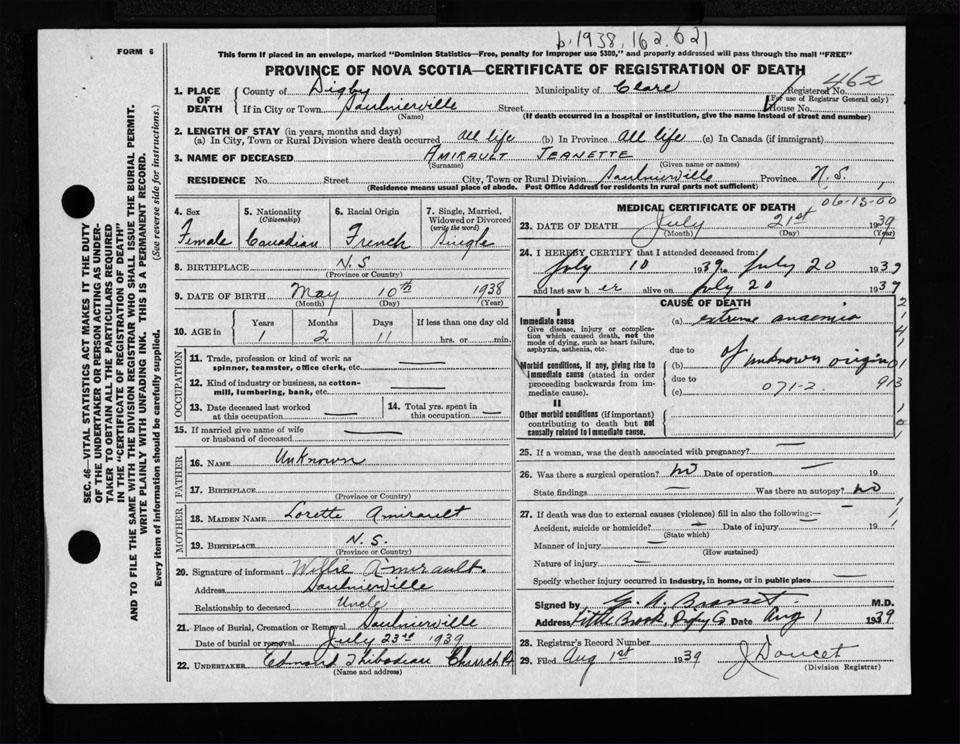 b. 1938, 162,621
FORM 6
This form if placed in an envelope, marked "Dominion Statistics—Free, penalty for improper use $300," and properly addressed will pass through the mail "FREE"
PROVINCE OF NOVA SCOTIA—CERTIFICATE OF REGISTRATION OF DEATH
462
1. PLACE OF DEATH County of Digby Municipality of Clare Registered No.
(For use of Registrar General only)
If in City or Town Saulnierville Street House No.
(Name) (If death occurred in a hospital or institution, give the name instead of street and number)
2. LENGTH OF STAY (in years, months and days)
(a) In City, Town or Rural Division where death occurred all life (b) In Province All life (c) In Canada (if immigrant)
3. NAME OF DECEASED AMIRAULT JEANETTE
(Surname) (Given name or names)
RESIDENCE No. Street City, Town or Rural Division Saulnierville Province N.S.
(Residence means usual place of abode. Post Office Address for residents in rural parts not sufficient)
4. Sex Female
5. Nationality (Citizenship) Canadian
6. Racial Origin French
7. Single, Married, Widowed or Divorced (write the word) Single
8. BIRTHPLACE N.S
(Province or Country)
9. DATE OF BIRTH May 10th 1938
(Month) (Day) (Year)
10. AGE in Years Months Days If less than one day old
1 2 11 hrs. or min.
OCCUPATION
11. Trade, profession or kind of work as spinner, teamster, office clerk, etc. —
12. Kind of industry or business, as cotton-mill, lumbering, bank, etc. —
13. Date deceased last worked at this occupation —
14. Total yrs. spent in this occupation —
15. If married give name of wife or husband of deceased —
FATHER
16. NAME Unknown
17. BIRTHPLACE
(Province or Country)
MOTHER
18. MAIDEN NAME Lorette Amirault
19. BIRTHPLACE N.S.
(Province or Country)
20. Signature of informant Willie Amirault.
Address Saulnierville
Relationship to deceased Uncle
21. Place of Burial, Cremation or Removal Saulnierville
Date of burial or removal July 23rd 1939
22. UNDERTAKER Edward Thibodeau Church Pt
(Name and address)
MEDICAL CERTIFICATE OF DEATH 06-13-00
23. DATE OF DEATH July 21st 1939
(Month) (Day) (Year)
24. I HEREBY CERTIFY that I attended deceased from:
July 10 1939 to July 20 1939
and last saw her alive on July 20 1939
CAUSE OF DEATH
I
Immediate cause
Give disease, injury or complication which caused death, not the mode of dying, such as heart failure, asphyxia, asthenia, etc.
(a) extreme anaemia
due to
Morbid conditions, if any, giving rise to immediate cause (stated in order proceeding backwards from immediate cause).
(b) of unknown origin
due to
(c) 071-2.
913
II
Other morbid conditions (if important) contributing to death but not causally related to immediate cause.
25. If a woman, was the death associated with pregnancy? —
26. Was there a surgical operation? no Date of operation — 19
State findings — Was there an autopsy? no
27. If death was due to external causes (violence) fill in also the following:—
Accident, suicide or homicide? — Date of injury — 19
(State which)
Manner of injury —
(How sustained)
Nature of injury —
Specify whether injury occurred in industry, in home, or in public place —
Signed by M.D.
Address Little Brook, Digby Co Date Aug 1 1939
28. Registrar's Record Number
29. Filed Aug 1st 1939 J Doucet
(Division Registrar)
SEC. 46—VITAL STATISTICS ACT MAKES IT THE DUTY
OF THE UNDERTAKER OR PERSON ACTING AS UNDER-
TAKER TO OBTAIN ALL THE PARTICULARS REQUIRED
IN THE "CERTIFICATE OF REGISTRATION OF DEATH"
AND TO FILE THE SAME WITH THE DIVISION REGISTRAR WHO SHALL ISSUE THE BURIAL PERMIT.
WRITE PLAINLY WITH UNFADING INK. THIS IS A PERMANENT RECORD.
Every item of information should be carefully supplied. (See reverse side for instructions.)